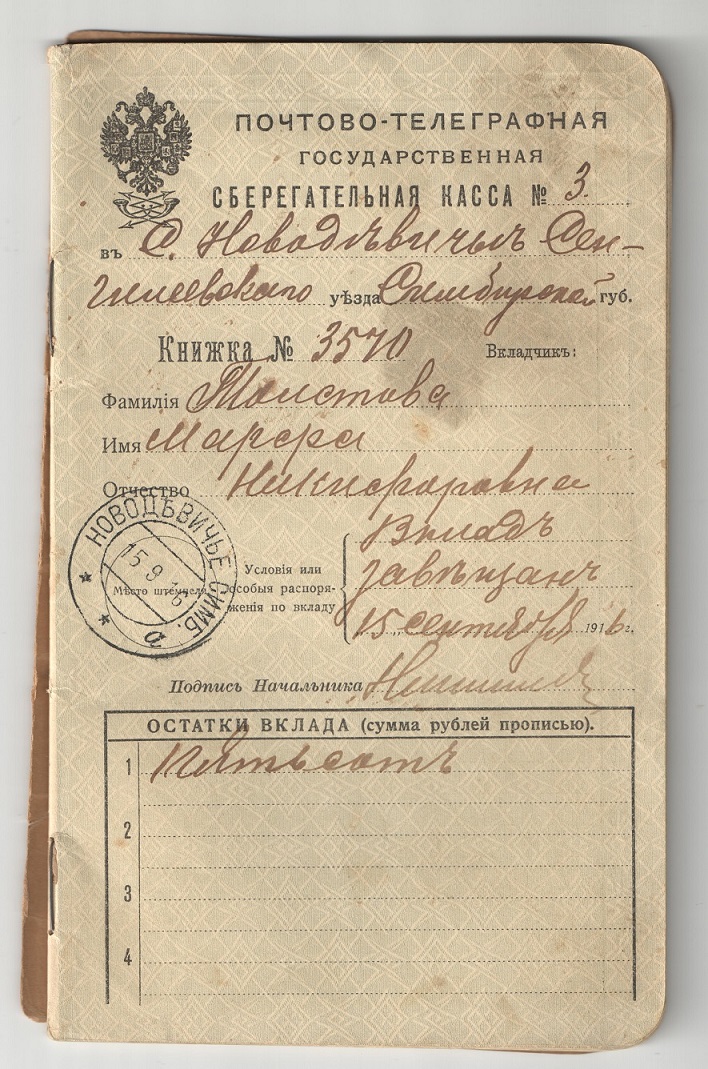 ПОЧТОВО-ТЕЛЕГРАФНАЯ
ГОСУДАРСТВЕННАЯ
СБЕРЕГАТЕЛЬНАЯ КАССА № 3.
въ с. Новодѣвичьемъ Сен-
гилеевскаго уѣзда Симбирской губ.
Книжка № 3570 Вкладчикъ:
Фамилія Толстова
Имя Марфа
Отчество Никифоровна
НОВОДѢВИЧЬЕ СИМБ.
15.9.16
а
Мѣсто штемпеля
Условія или
особыя распоря-
женія по вкладу
Вкладъ
завѣщанъ
15 сентября 1916 г.
Подпись Начальника
ОСТАТКИ ВКЛАДА (сумма рублей прописью).
1 Пятьсотъ
2
3
4